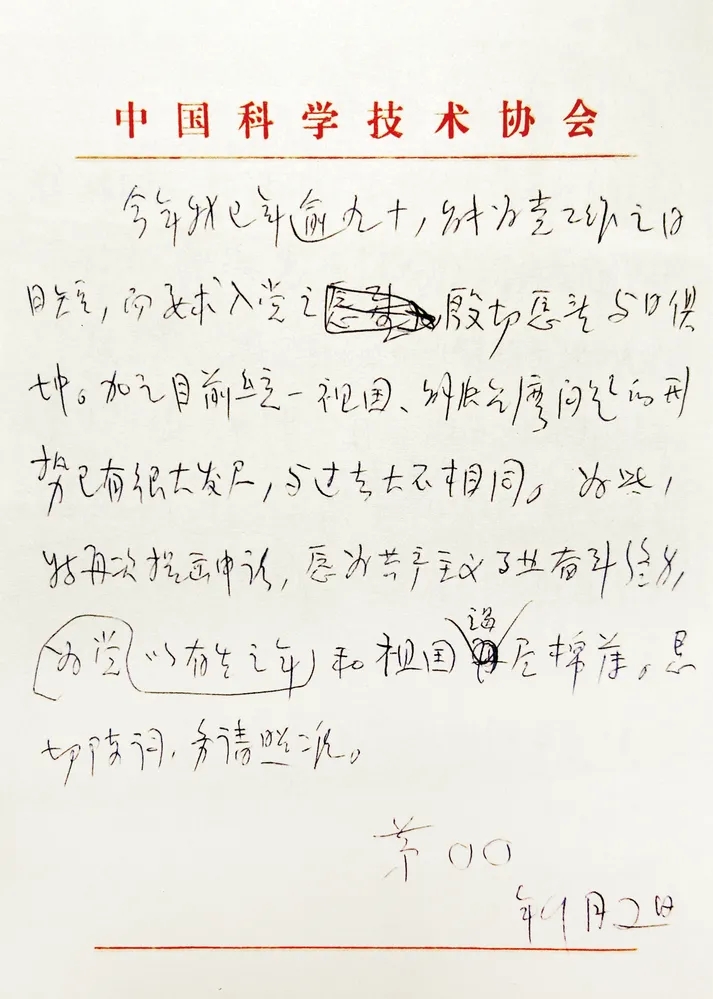 中国科学技术协会
今年我已年逾九十，能为党工作之日
日短，而要求入党之殷切愿望与日俱
增。加之目前统一祖国、解决台湾问题的形
势已有很大发展，与过去大不相同。为此，
特再次提出申请，愿为共产主义事业奋斗终身，
为党（以有生之年）和祖国尽棉薄。恳
切陈词，务请照准。
茅〇〇
年9月2日